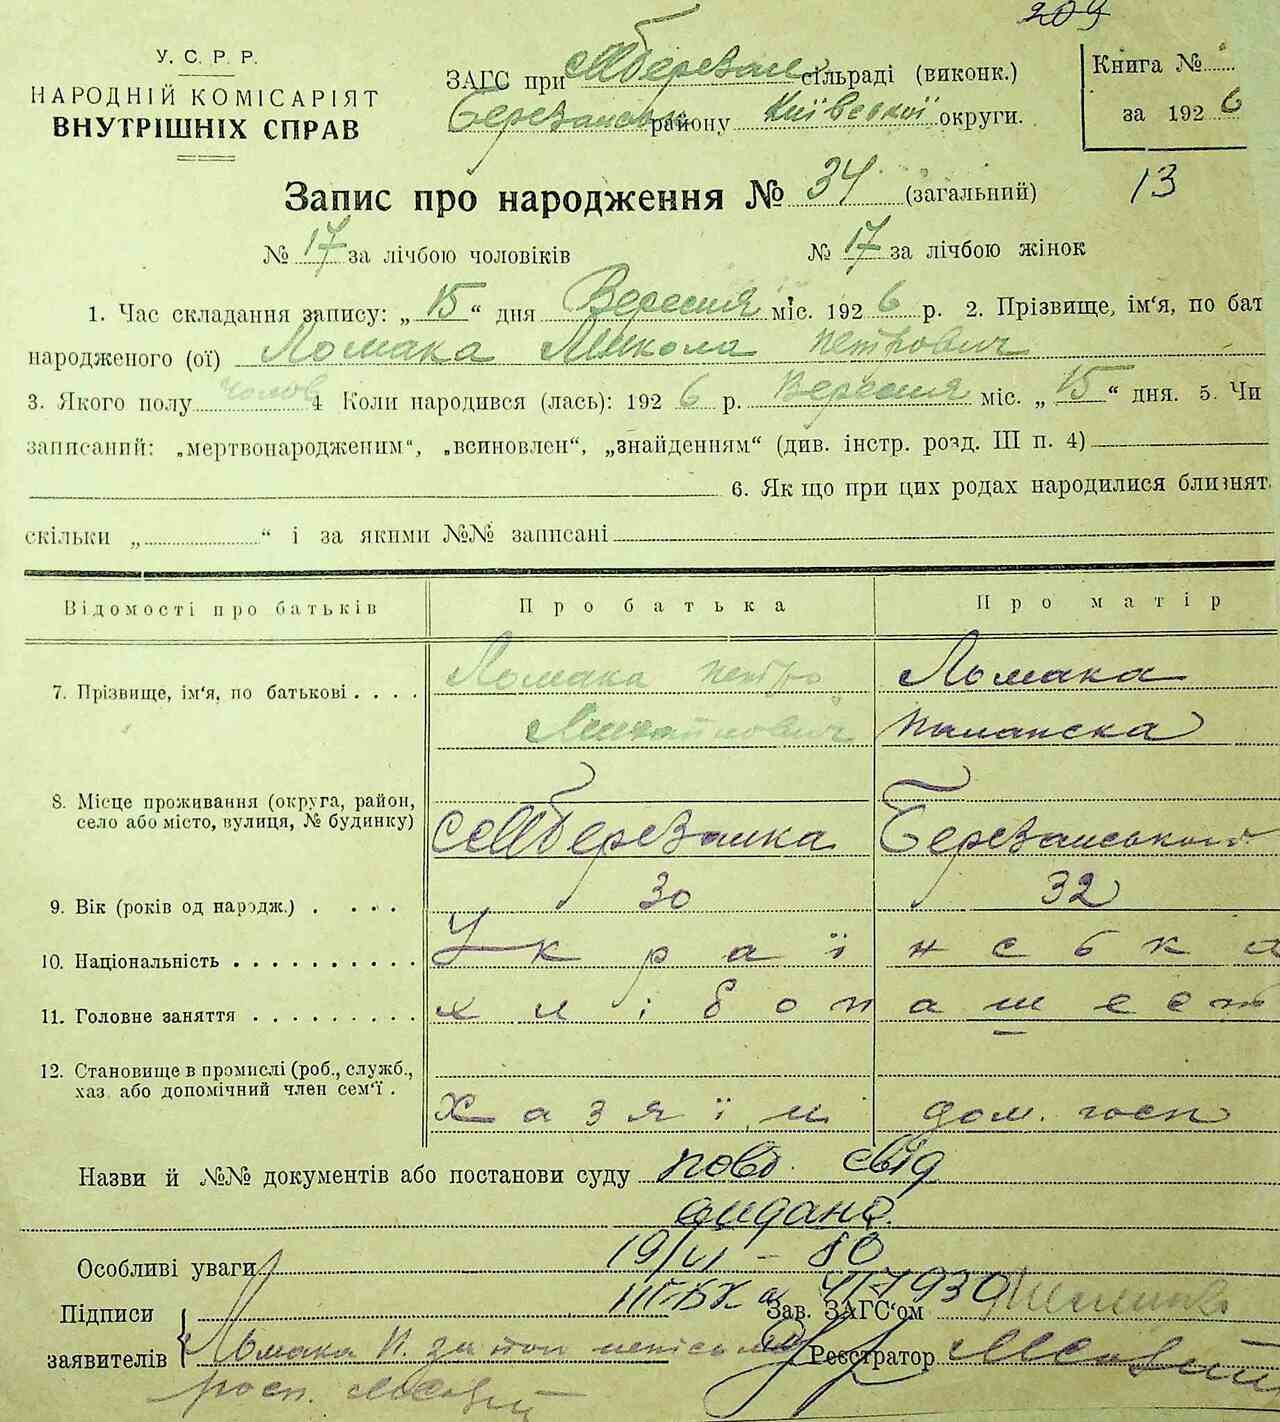 209
У. С. Р. Р.
НАРОДНІЙ КОМІСАРІЯТ
ВНУТРІШНІХ СПРАВ
ЗАГС при см Березан сільраді (виконк.)
Березансько району Київської округи.
Книга №
за 1926
Запис про народження № 34 (загальний)
13
№ 17 за лічбою чоловіків № 17 за лічбою жінок
1. Час складання запису: „ 15 “ дня Вересня міс. 1926 р. 2. Прізвище, ім‘я, по бат
народженого (ої) Ломака Микола Петрович
3. Якого полу Чолов 4 Коли народився (лась): 1926 р. Вересня міс. „ 15 “ дня. 5. Чи
записаний: „мертвонародженим“, „всиновлен“, „знайденням“ (див. інстр. розд. III п. 4)
6. Як що при цих родах народилися близнят.
скільки „ “ і за якими №№ записані
Відомості про батьків Про батька Про матір
7. Прізвище, ім‘я, по батькові . . . . Ломака Петро Ломака
Михайлович
8. Місце проживання (округа, район,
село або місто, вулиця, № будинку) см Березанка Березанського
9. Вік (років од народж.) . . . . 30 32
10. Національність . . . . . . . . . . Українська
11. Головне заняття . . . . . . . . . хлібопашест
12. Становище в промислі (роб., служб.,
хаз. або допомічний член сем‘ї . Хазяїн дом. госп
Назви й №№ документів або постанови суду повт. свід
видано.
Особливі уваги 19/VI - 80
III-БК № 417930
Підписи Зав. ЗАГС‘ом
заявителів Ломака П. за
Реєстратор
росп.